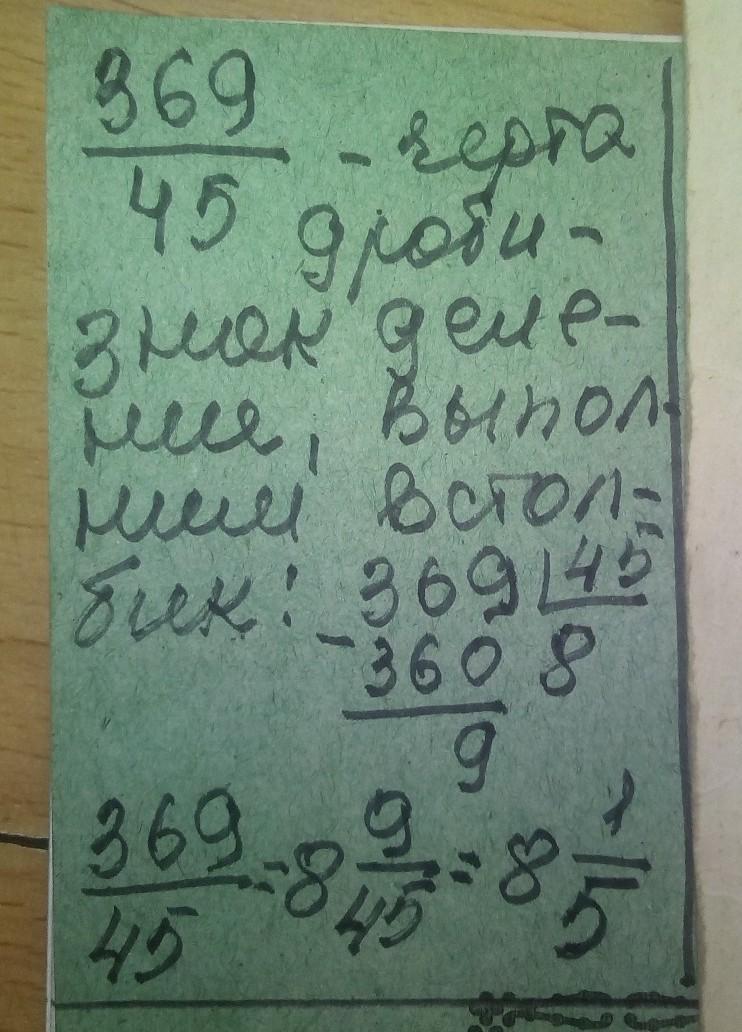 369/45 - черта
дроби -
знак деле-
ние, выпол-
ним встол-
бик: 369 | 45
- 360 8
9
369/45 = 8 9/45 = 8 1/5